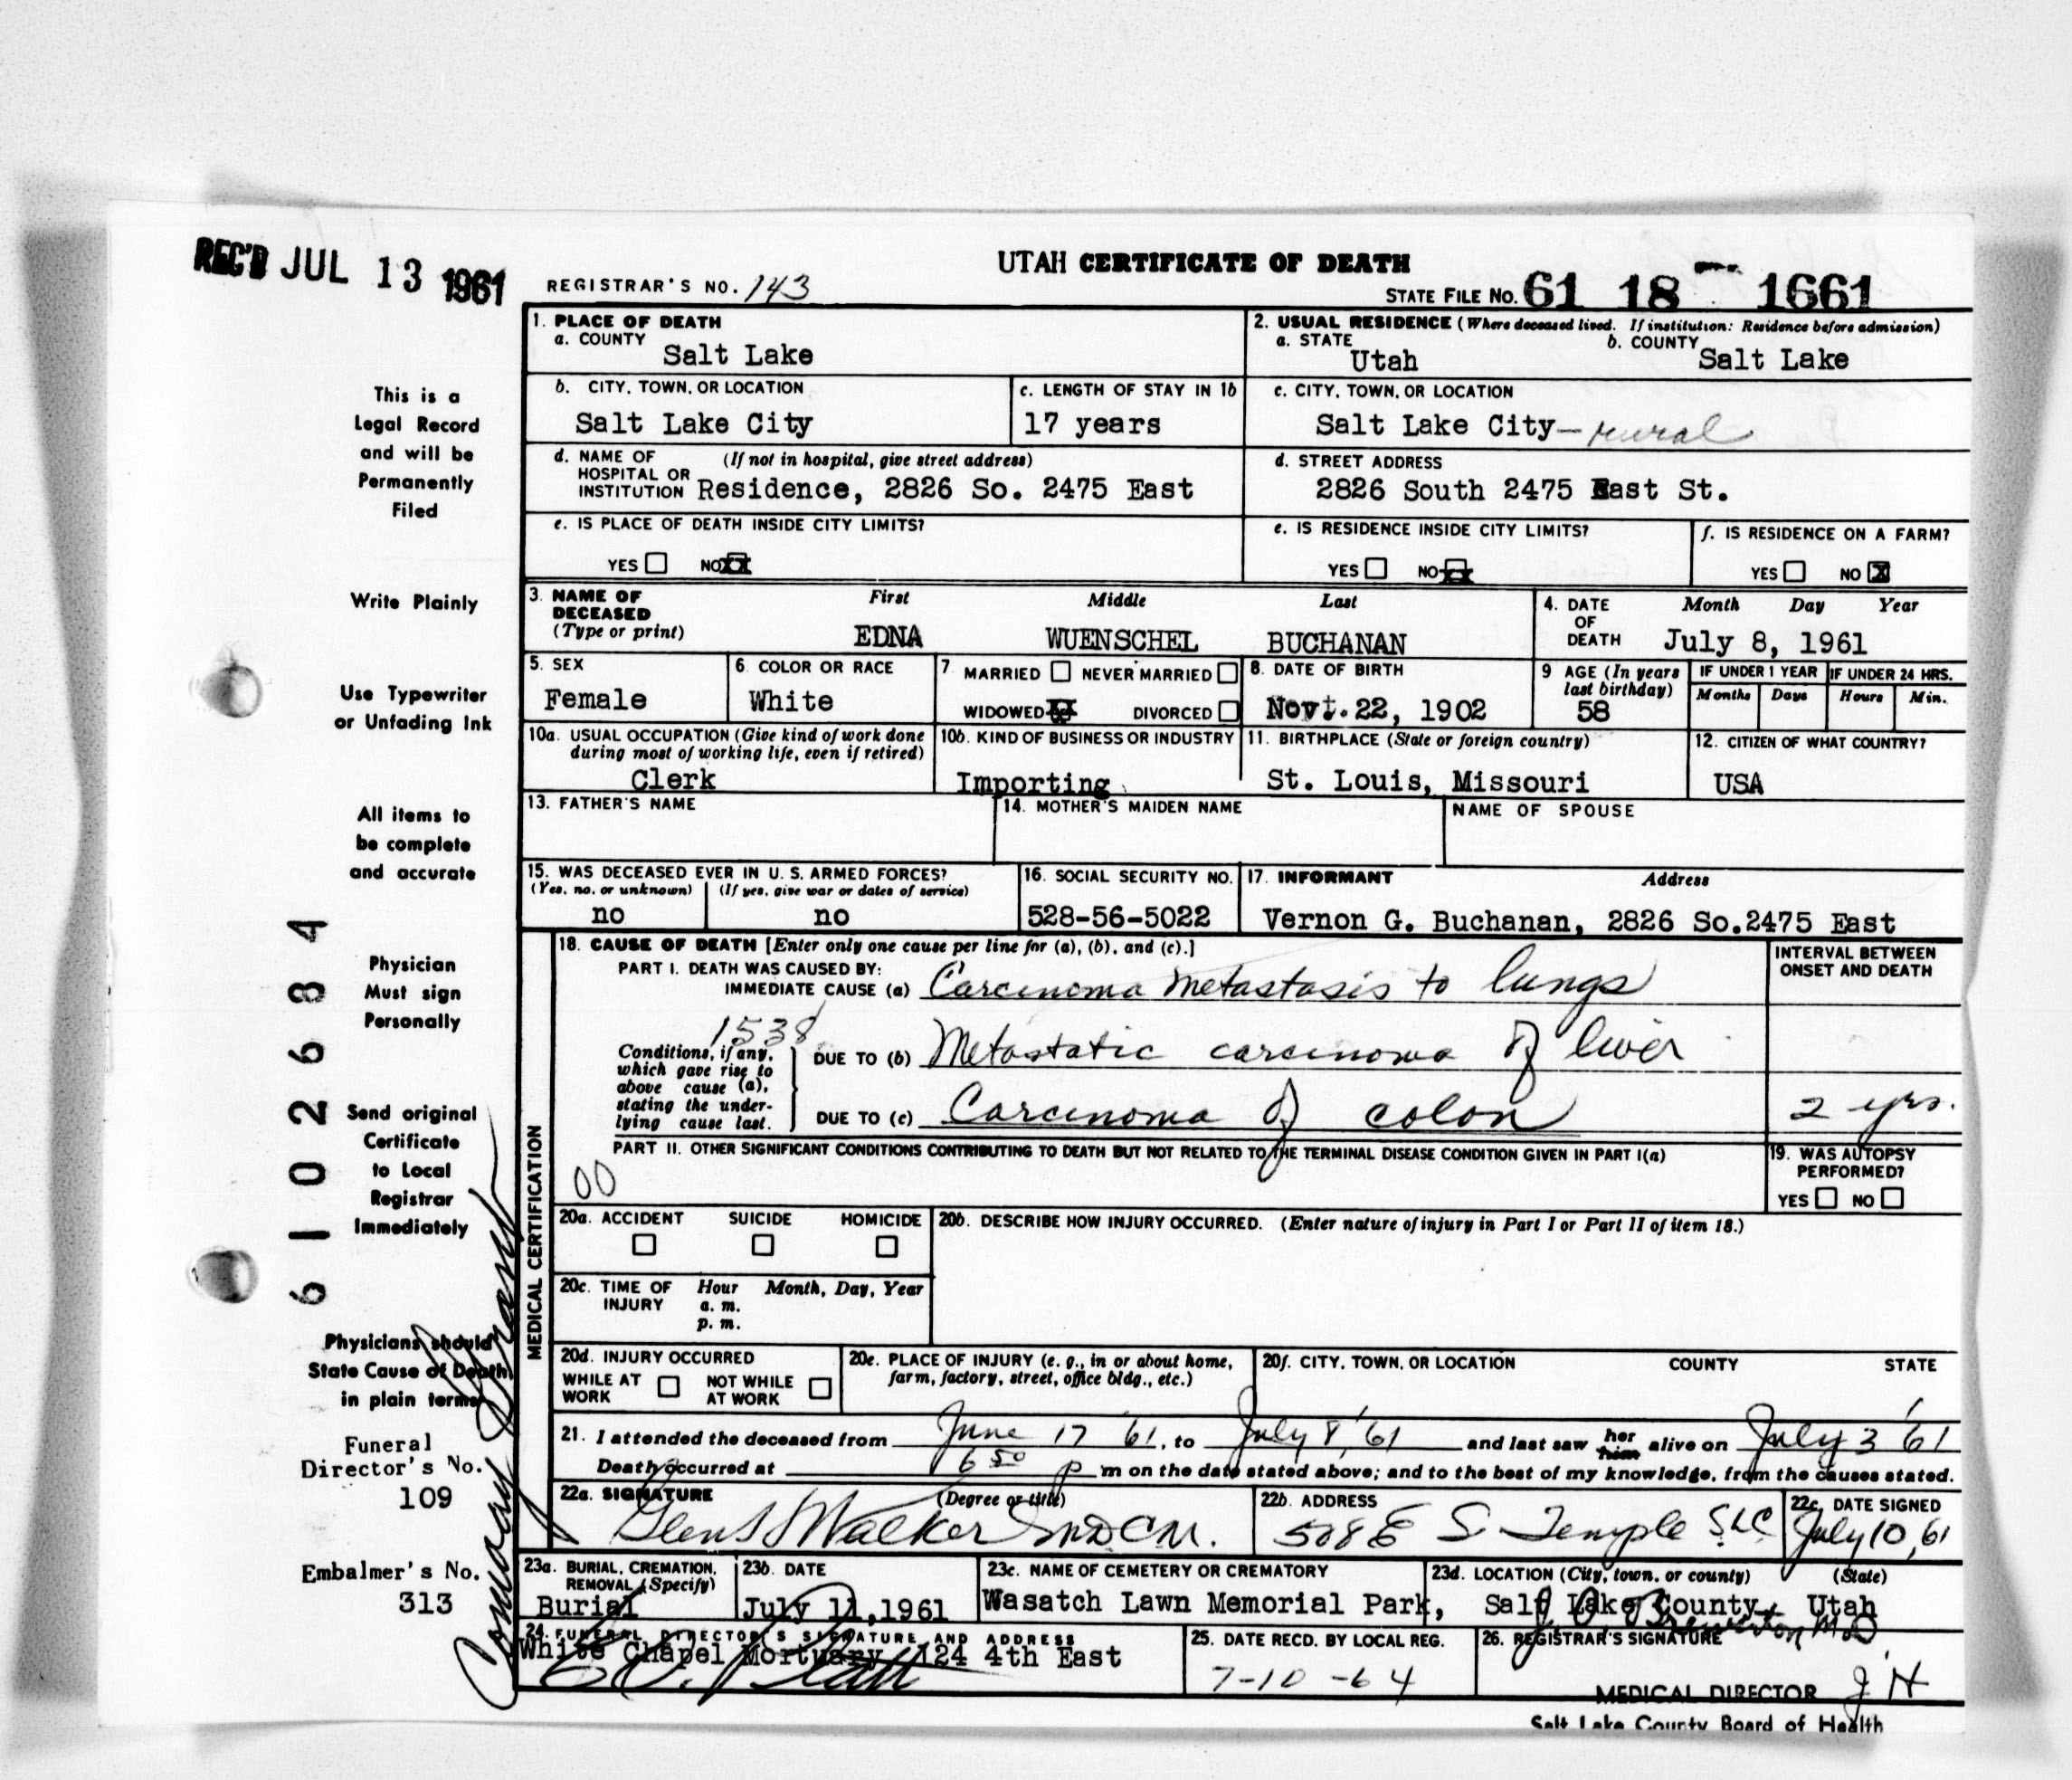 REC'D JUL 13 1961
UTAH CERTIFICATE OF DEATH
REGISTRAR'S NO. 143
STATE FILE NO. 61 18 1661
This is a
Legal Record
and will be
Permanently
Filed
Write Plainly
Use Typewriter
or Unfading Ink
All items to
be complete
and accurate
Physician
Must sign
Personally
Send original
Certificate
to Local
Registrar
Immediately
Physicians should
State Cause of Death
in plain terms
Funeral
Director's No.
109
Embalmer's No.
313
61026834
1. PLACE OF DEATH
a. COUNTY
Salt Lake
2. USUAL RESIDENCE (Where deceased lived. If institution: Residence before admission)
a. STATE
Utah
b. COUNTY
Salt Lake
b. CITY, TOWN, OR LOCATION
Salt Lake City
c. LENGTH OF STAY IN 1b
17 years
c. CITY, TOWN, OR LOCATION
Salt Lake City—rural
d. NAME OF (If not in hospital, give street address)
HOSPITAL OR
INSTITUTION Residence, 2826 So. 2475 East
d. STREET ADDRESS
2826 South 2475 East St.
e. IS PLACE OF DEATH INSIDE CITY LIMITS?
YES NO XX
e. IS RESIDENCE INSIDE CITY LIMITS?
YES NO XX
f. IS RESIDENCE ON A FARM?
YES NO X
3. NAME OF
DECEASED
(Type or print)
First Middle Last
EDNA WUENSCHEL BUCHANAN
4. DATE
OF
DEATH
Month Day Year
July 8, 1961
5. SEX
Female
6. COLOR OR RACE
White
7. MARRIED NEVER MARRIED
WIDOWED DIVORCED
8. DATE OF BIRTH
Nov. 22, 1902
9 AGE (In years
last birthday)
58
IF UNDER 1 YEAR IF UNDER 24 HRS.
Months Days Hours Min.
10a. USUAL OCCUPATION (Give kind of work done
during most of working life, even if retired)
Clerk
10b. KIND OF BUSINESS OR INDUSTRY
Importing
11. BIRTHPLACE (State or foreign country)
St. Louis, Missouri
12. CITIZEN OF WHAT COUNTRY?
USA
13. FATHER'S NAME
14. MOTHER'S MAIDEN NAME
NAME OF SPOUSE
15. WAS DECEASED EVER IN U. S. ARMED FORCES?
(Yes, no, or unknown) (If yes, give war or dates of service)
no no
16. SOCIAL SECURITY NO.
528-56-5022
17. INFORMANT Address
Vernon G. Buchanan, 2826 So.2475 East
MEDICAL CERTIFICATION
18. CAUSE OF DEATH [Enter only one cause per line for (a), (b), and (c).]
INTERVAL BETWEEN
ONSET AND DEATH
PART I. DEATH WAS CAUSED BY:
IMMEDIATE CAUSE (a) Carcinoma metastasis to lungs
1538
Conditions, if any,
which gave rise to
above cause (a),
stating the under-
lying cause last.
DUE TO (b) Metastatic carcinoma of liver
DUE TO (c) Carcinoma of colon
2 yrs.
PART II. OTHER SIGNIFICANT CONDITIONS CONTRIBUTING TO DEATH BUT NOT RELATED TO THE TERMINAL DISEASE CONDITION GIVEN IN PART I(a)
00
19. WAS AUTOPSY
PERFORMED?
YES NO
20a. ACCIDENT SUICIDE HOMICIDE
20b. DESCRIBE HOW INJURY OCCURRED. (Enter nature of injury in Part I or Part II of item 18.)
20c. TIME OF
INJURY
Hour Month, Day, Year
a. m.
p. m.
20d. INJURY OCCURRED
WHILE AT
WORK
NOT WHILE
AT WORK
20e. PLACE OF INJURY (e. g., in or about home,
farm, factory, street, office bldg., etc.)
20f. CITY, TOWN, OR LOCATION COUNTY STATE
21. I attended the deceased from June 17 '61, to July 8, '61 and last saw her him alive on July 3 '61
Death occurred at 6 50 p m on the date stated above; and to the best of my knowledge, from the causes stated.
22a. SIGNATURE (Degree or title)
Walker MDCM.
22b. ADDRESS
508 E S. Temple SLC
22c. DATE SIGNED
July 10, 61
23a. BURIAL, CREMATION,
REMOVAL (Specify)
Burial
23b. DATE
July 11, 1961
23c. NAME OF CEMETERY OR CREMATORY
Wasatch Lawn Memorial Park,
23d. LOCATION (City, town, or county) (State)
Salt Lake County Utah
24. FUNERAL DIRECTOR'S SIGNATURE AND ADDRESS
White Chapel Mortuary 124 4th East
25. DATE RECD. BY LOCAL REG.
7-10-64
26. REGISTRAR'S SIGNATURE
MEDICAL DIRECTOR JH
Salt Lake County Board of Health